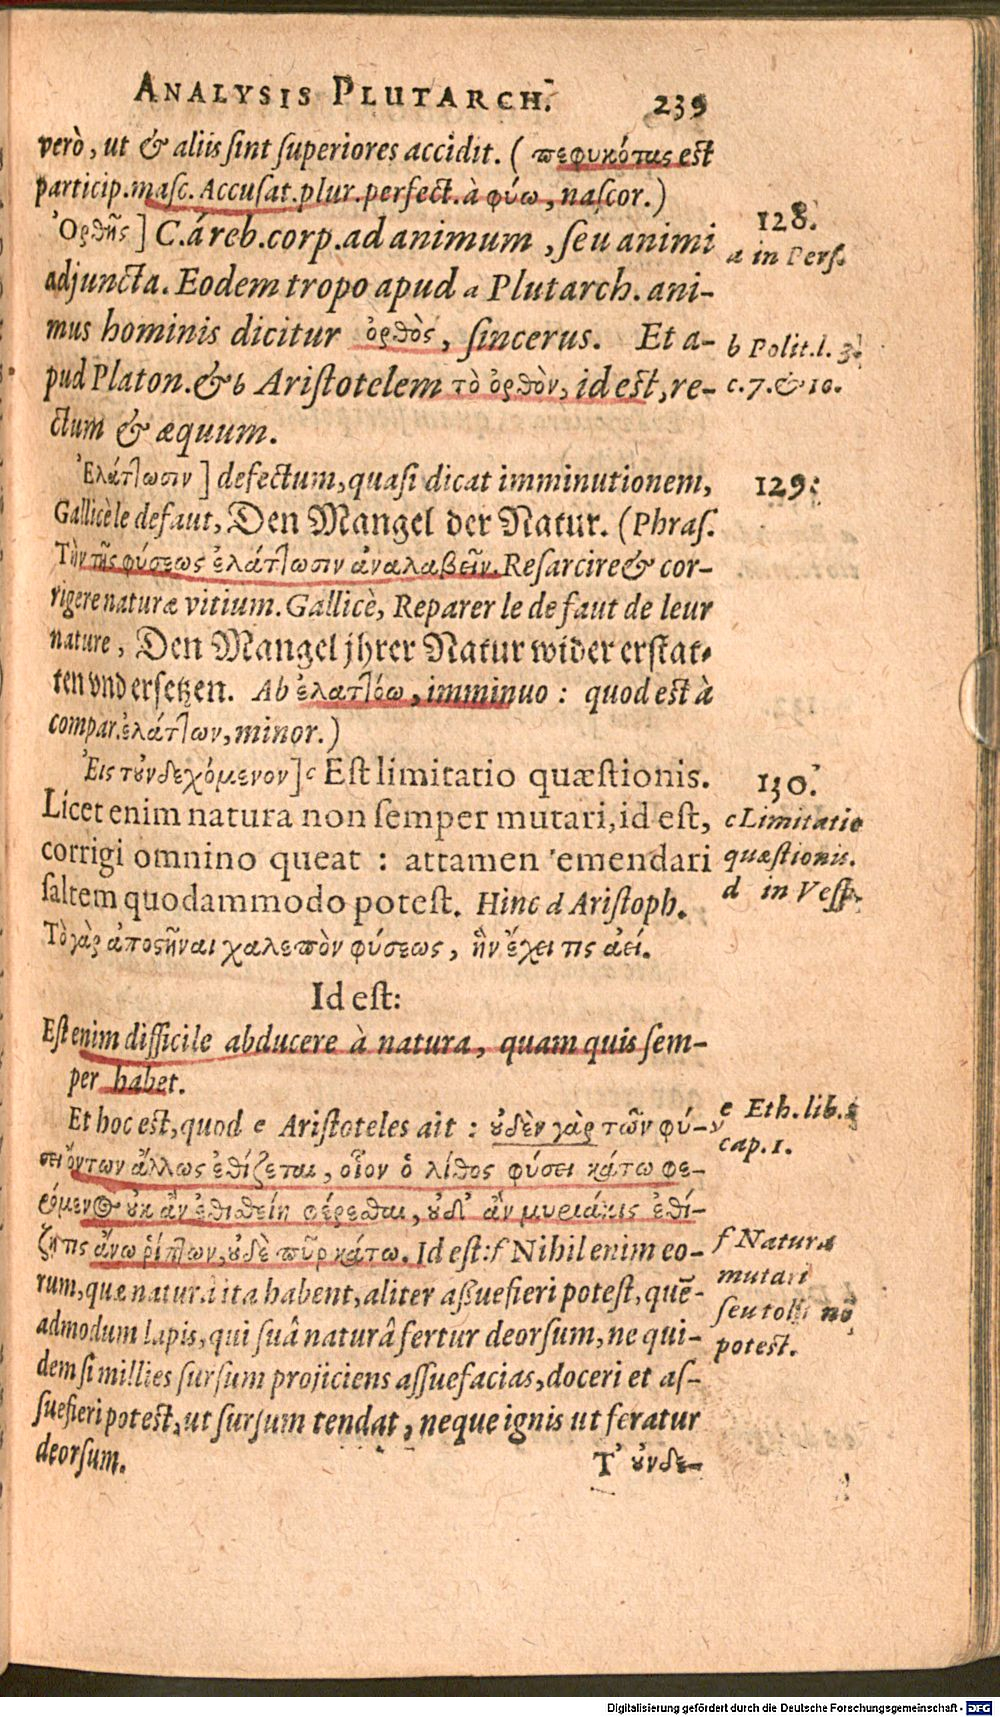 ANALYSIS PLUTARCH. 239
verò, ut & aliis sint superiores accidit. ( πεφυκότας est
particip. masc. Accusat. plur. perfect. à φύω, nascor.)
Ὀρθῆς ] C. á reb. corp. ad animum, seu animi
adjuncta. Eodem tropo apud a Plutarch. ani-
mus hominis dicitur ὀρθὸς, sincerus. Et a-
pud Platon. & b Aristotelem τὸ ὀρθὸν, id est, re-
ctum & æquum.
128.
a in Pers.
b Polit. l. 3.
c. 7. & 10.
Ἐλάττωσιν ] defectum, quasi dicat imminutionem,
Gallicè le defaut, Den Mangel der Natur. (Phras.
Τὴν τῆς φύσεως ἐλάττωσιν ἀναλαβεῖν. Resarcire & cor-
rigere naturæ vitium. Gallicè, Reparer le defaut de leur
nature, Den Mangel jhrer Natur wider erstat-
ten vnd ersetzen. Ab ἐλαττόω, imminuo : quod est à
compar. ἐλάττων, minor.)
129.
Ἐις τοὐνδεχόμενον ] c Est limitatio quæstionis.
Licet enim natura non semper mutari, id est,
corrigi omnino queat : attamen emendari
saltem quodammodo potest. Hinc d Aristoph.
Τὸ γὰρ ἀποστῆναι χαλεπὸν φύσεως, ἣν ἔχει τις ἀεί.
130.
c Limitatio
quæstionis.
d in Vesp.
Id est:
Est enim difficile abducere à natura, quam quis sem-
per habet.
Et hoc est, quod e Aristoteles ait : οὐδὲν γὰρ τῶν φύ-
σει ὄντων ἄλλως ἐθίζεται, οἷον ὁ λίθος φύσει κάτω φε-
ρόμενος οὐκ ἂν ἐθισθείη φέρεσθαι, οὐδ' ἂν μυριάκις ἐθί-
ζῃ τις ἄνω ῥίπτων, οὐδὲ πῦρ κάτω. Id est: f Nihil enim eo-
rum, quæ natura ita habent, aliter assuefieri potest, quē-
admodum lapis, qui suâ naturâ fertur deorsum, ne qui-
dem si millies sursum projiciens assuefacias, doceri et as-
suefieri potest, ut sursum tendat, neque ignis ut feratur
deorsum.
e Eth. lib.
cap. 1.
f Natura
mutari
seu tolli nō
potest.
Τ' οὐνδε-
Digitalisierung gefördert durch die Deutsche Forschungsgemeinschaft - DFG